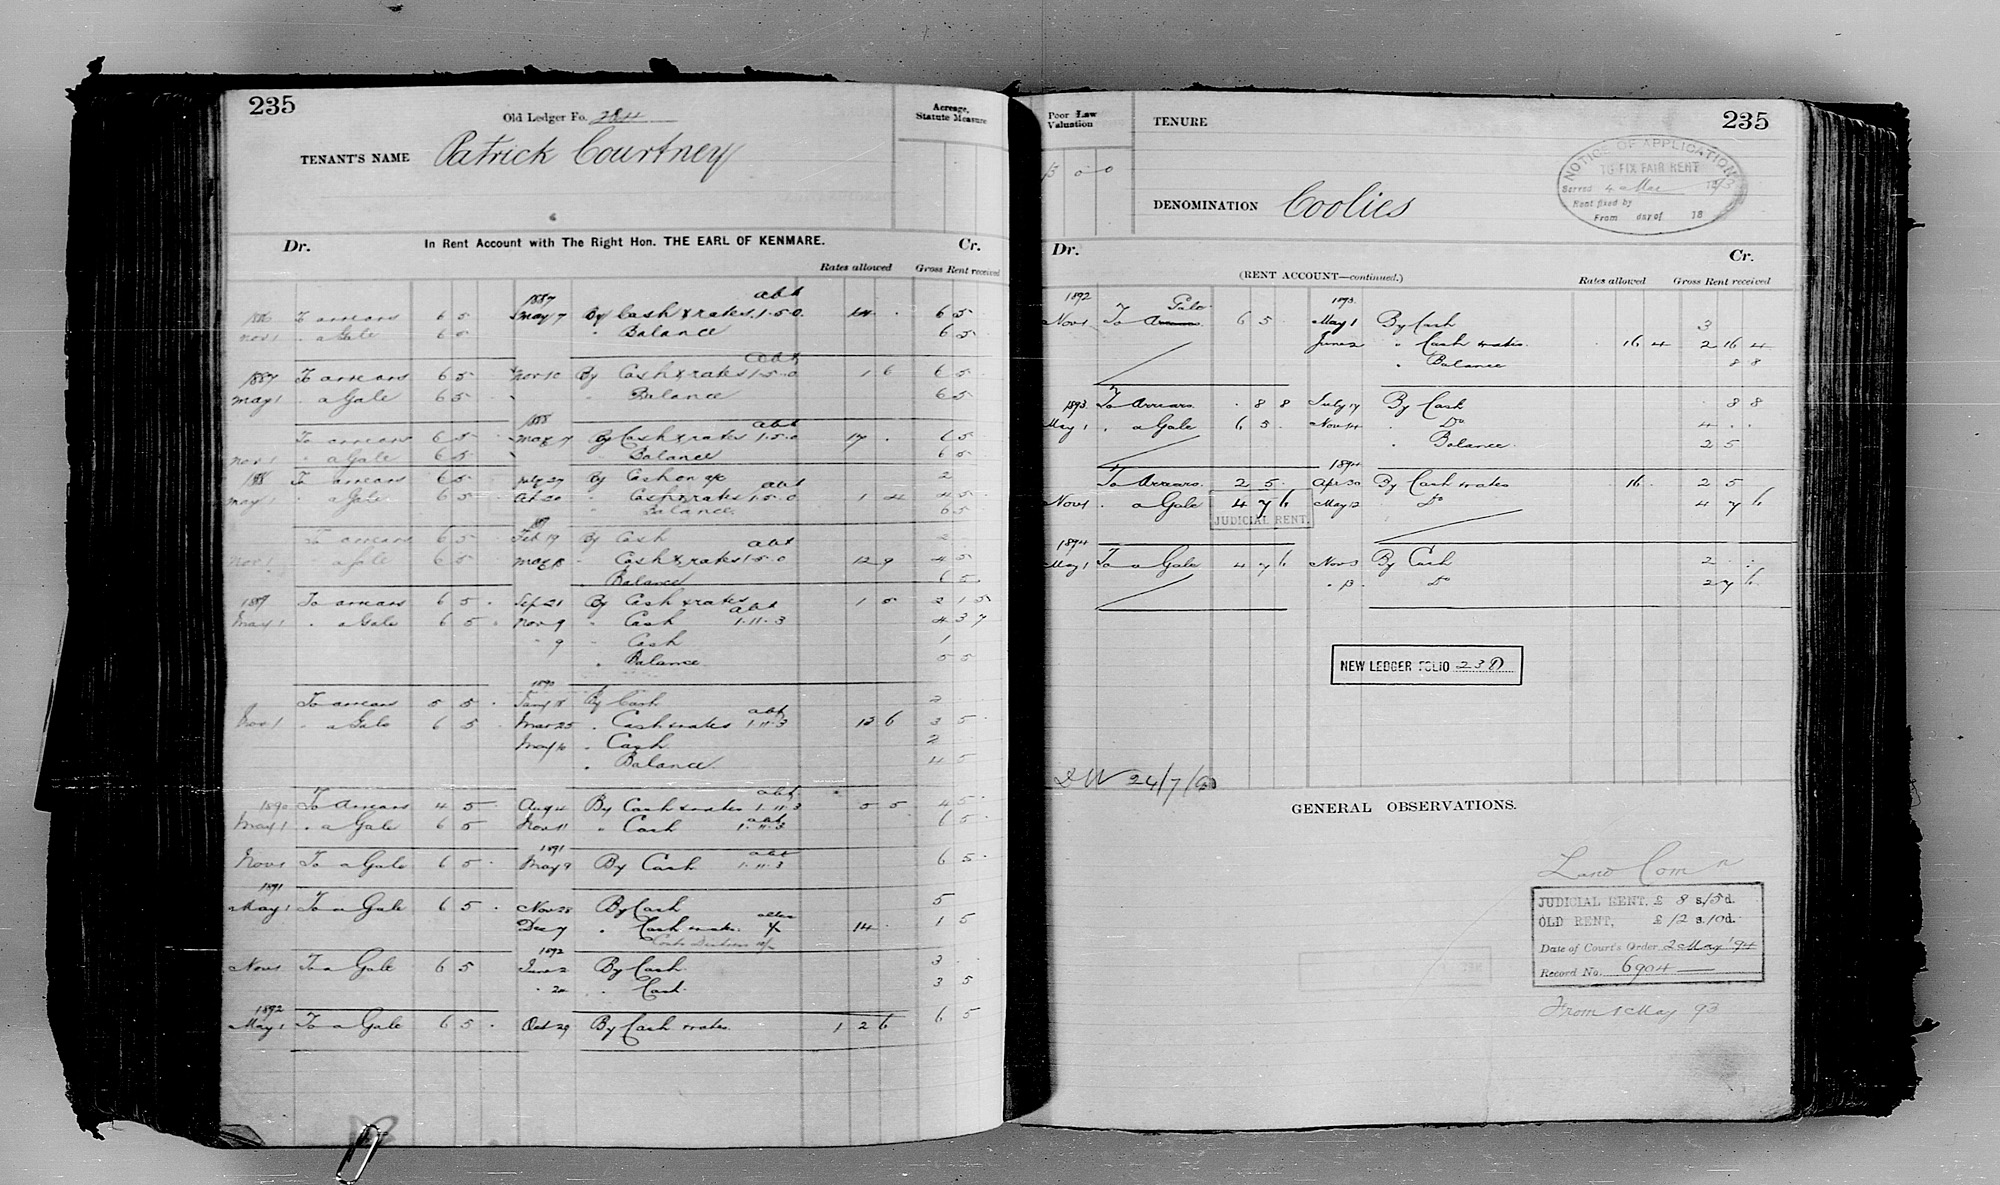 235
Old Ledger Fo.
Acreage, Statute Measure
TENANT'S NAME Patrick Courtney
Dr. In Rent Account with The Right Hon. THE EARL OF KENMARE. Cr.
Rates allowed Gross Rent received
1887 abt
1886 To arrears 6 5 May 7 By Cash & rates 1.5.0 14 . 6 5
Nov 1 " a Gale 6 5 " Balance 6 5
abt
1887 To arrears 6 5 Nov 10 By Cash & rates 1.5.0 1 6 6 5
May 1 " a Gale 6 5 " Balance 6 5
1888 abt
To arrears 6 5 May 7 By Cash & rates 1.5.0 17 . 6 5
Nov 1 " a Gale 6 5 Balance 6 5
1888 To arrears 6 5 July 27 By Cash on a/c 2
abt
May 1 " a Gale 6 5 Cash & rates 1.5.0 1 4 4 5
Balance 6 5
1889
To arrears 6 5 Feb 19 By Cash 2
abt
Nov 1 a Gale 6 5 May 18 Cash & rates 1.5.0 12 9 4 5
Balance 6 5
1889 To arrears 6 5 Sep 21 By Cash & rates 1 5 2 1 5
abt
May 1 " a Gale 6 5 Nov 9 " Cash 1.11.3 4 3 7
" 9 " Cash 1
" Balance 5 5
1890
To arrears 5 5 Jany 18 By Cash 2
abt
Nov 1 " a Gale 6 5 Mar 25 " Cash & rates 1.11.3 13 6 3 5
May 10 " Cash 2
" Balance 4 5
abt
1890 To Arrears 4 5 Aug 4 By Cash & rates 1.11.3 5 5 4 5
abt
May 1 " a Gale 6 5 Nov 11 " Cash 1.11.3 6 5
1891 abt
Nov 1 To a Gale 6 5 May 9 By Cash 1.11.3 6 5
1891
May 1 To a Gale 6 5 Nov 28 By Cash 5
Dec 7 " Cash & rates 14 . 1 5
1892
Nov 1 To a Gale 6 5 June 2 By Cash 3
Cash 3 5
1892
May 1 To a Gale 6 5 Oct 29 By Cash & rates 1 2 6 6 5
Poor Law Valuation
TENURE
235
DENOMINATION Coolies
NOTICE OF APPLICATION
TO FIX FAIR RENT
Served 4 Mar 1893
Rent fixed by
From day of 18
Dr. Cr.
(RENT ACCOUNT—continued.) Rates allowed Gross Rent received
1892 Gale 1893
Nov 1 To Arrears 6 5 May 1 By Cash 3
June 2 " Cash & rates 16 4 2 16 4
" Balance 8 8
1893 To Arrears . 8 8 July 17 By Cash . 8 8
May 1 " a Gale 6 5 Nov 14 " Do 4 . .
" Balance 2 5
1894
To Arrears 2 5 Apr 30 By Cash & rates 16 . 2 5
Nov 1 " a Gale 4 7 6 May 12 Do 4 7 6
JUDICIAL RENT.
1894
May 1 To a Gale 4 7 6 Nov 3 By Cash 2 . .
" 13 " Do 2 7 6
NEW LEDGER FOLIO 230
DW 24/7/60
GENERAL OBSERVATIONS.
Land Comn
JUDICIAL RENT, £ 8 s. 15 d.
OLD RENT, £ 12 s. 10 d.
Date of Court's Order 2 May '94
Record No. 6904
From 1 May 93